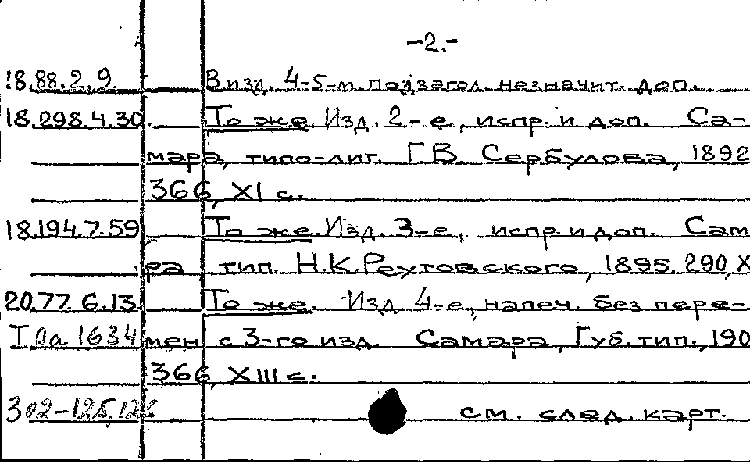 -2.-
18.88.2.9 В изд. 4-5-м подзагол. незначит. доп.
18.298.4.30. То же. Изд. 2-е, испр. и доп. Са-
мара, типо-лит. Г.В. Сербулова, 1892
366, XI с.
18.194.7.59 То же. Изд. 3-е, испр. и доп. Сам
ра тип. Н.К. Реутовского, 1895. 290, X
20.77.6.13. То же. Изд. 4-е, напеч. без пере-
I.Па.1634 мен с 3-го изд. Самара, Губ. тип., 190
366, XIII с.
302-125, см. след. карт.